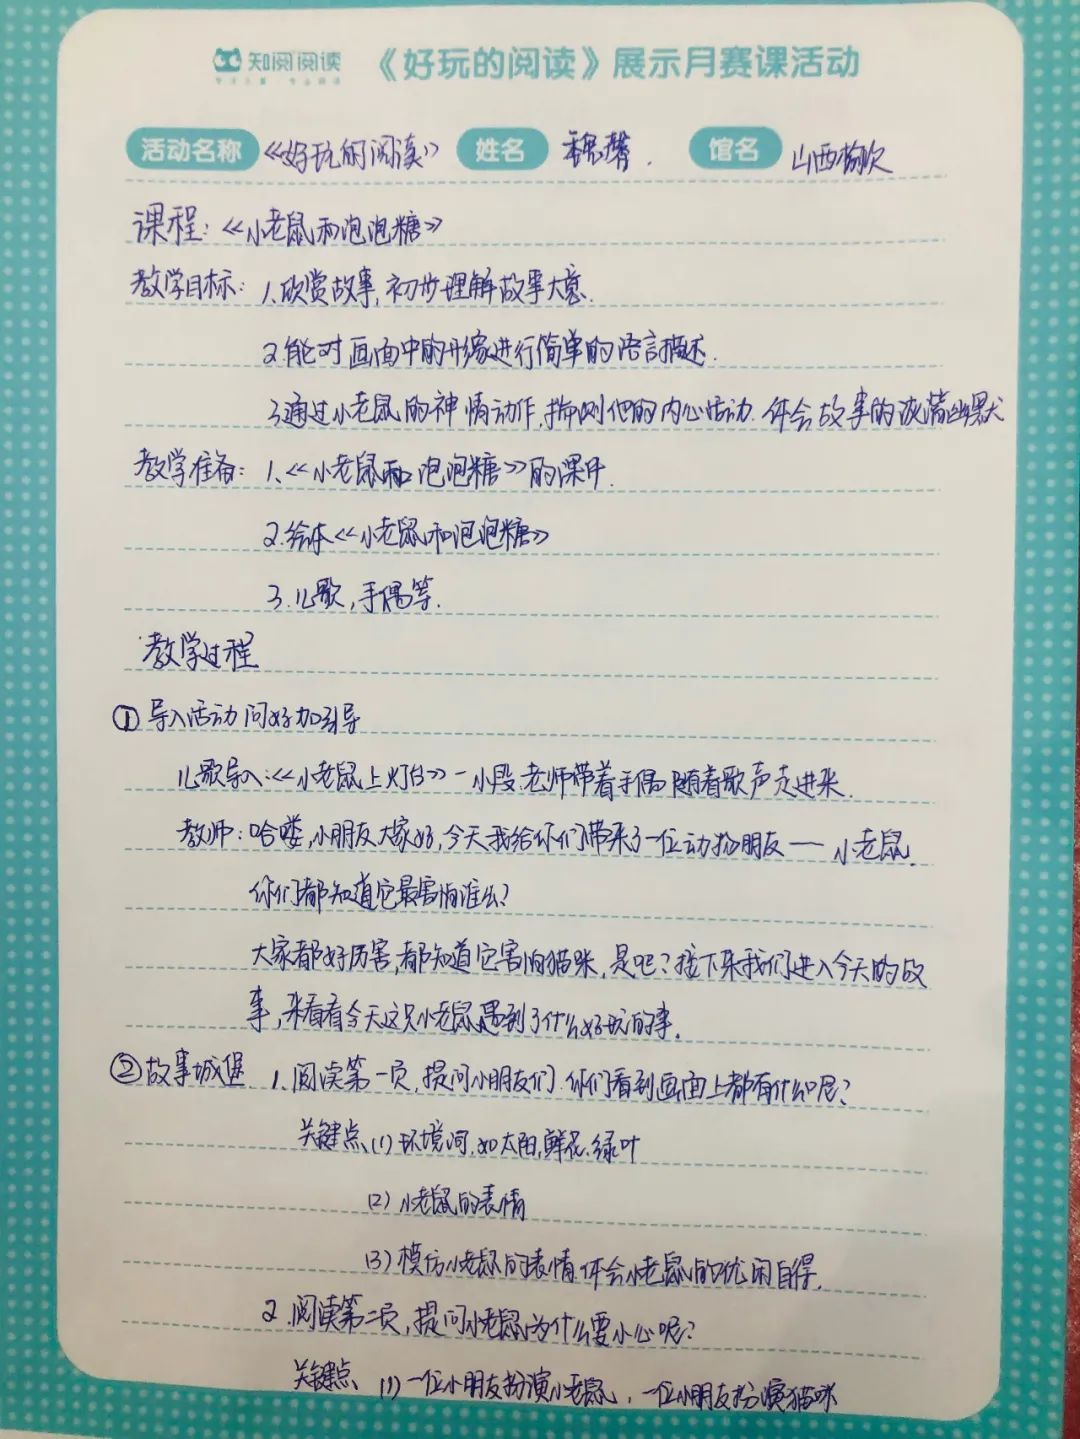 知阅阅读 《好玩的阅读》展示月赛课活动
活动名称 《好玩的阅读》 姓名 馆名 山西榆次
课程：《小老鼠和泡泡糖》
教学目标：1.欣赏故事，初步理解故事大意.
2.能对画面中的形象进行简单的语言描述.
3.通过小老鼠的神情动作,揣测他的内心活动.体会故事的诙谐幽默
教学准备：1.《小老鼠和泡泡糖》的课件.
2.绘本《小老鼠和泡泡糖》
3.儿歌，手偶等.
教学过程
①导入活动问好加引导
儿歌导入：《小老鼠上灯台》一小段.老师带着手偶随着歌声走进来.
教师：哈喽，小朋友大家好，今天我给你们带来了一位动物朋友——小老鼠.
你们都知道它最害怕谁么？
大家都好厉害，都知道它害怕猫咪，是吧？接下来我们进入今天的故
事，来看看今天这只小老鼠遇到了什么好玩的事.
②故事城堡 1.阅读第一页，提问小朋友们.你们看到画面上都有什么呢？
关键点(1)环境词，如太阳，鲜花.绿叶
(2)小老鼠的表情
(3)模仿小老鼠的表情.体会小老鼠的悠闲自得.
2.阅读第二页，提问小老鼠为什么要小心呢？
关键点 (1)一位小朋友扮演小老鼠，一位小朋友扮演猫咪